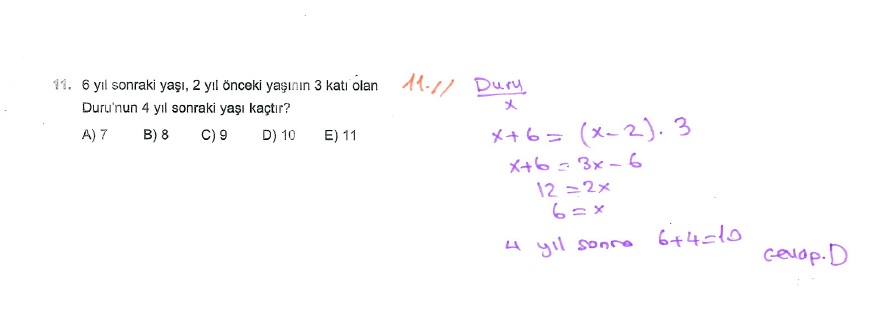 11. 6 yıl sonraki yaşı, 2 yıl önceki yaşının 3 katı olan
Duru'nun 4 yıl sonraki yaşı kaçtır?
A) 7 B) 8 C) 9 D) 10 E) 11
11-//
Duru
x
x+6 = (x-2).3
x+6 = 3x-6
12 = 2x
6 = x
4 yıl sonra 6+4=10
cevap.D